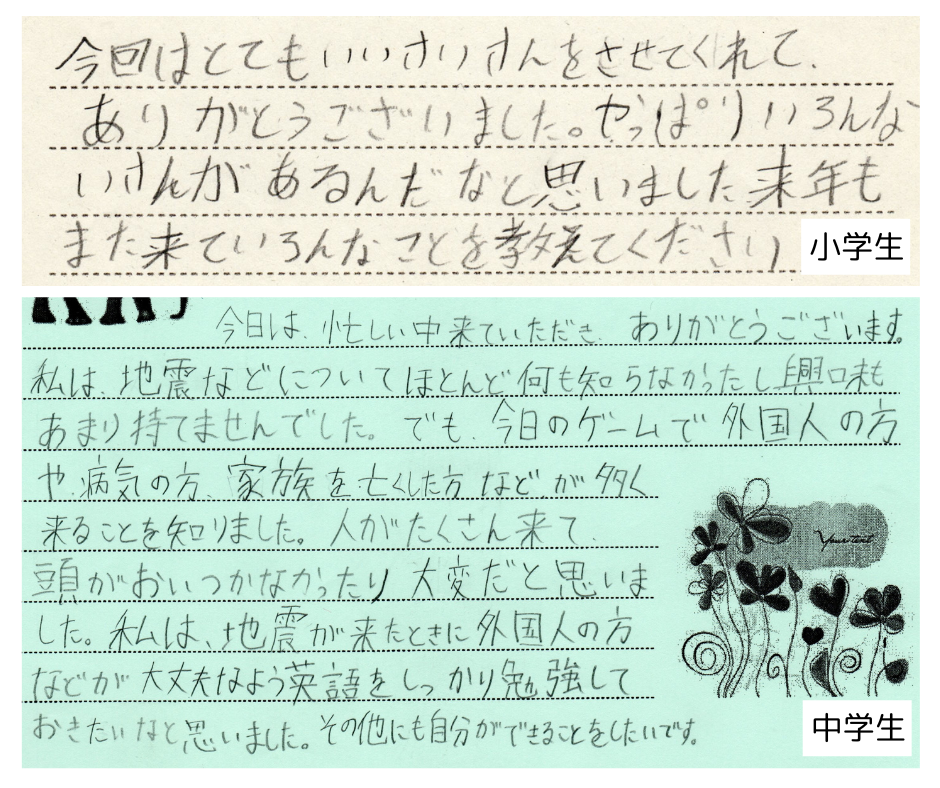 今回はとてもいいけいけんをさせてくれて.
ありがとうございました。やっぱりいろんな
いけんがあるんだなと思いました来年も
また来ていろんなことを教えてください
小学生
今日は、忙しい中来ていただき、ありがとうございます。
私は、地震などについてほとんど何も知らなかったし興味も
あまり持てませんでした。でも、今日のゲームで外国人の方
や、病気の方、家族を亡くした方などが多く
来ることを知りました。人がたくさん来て、
頭がおいつかなかったり大変だと思いま
した。私は、地震が来たときに外国人の方
などが大丈夫なよう英語をしっかり勉強して
おきたいなと思いました。その他にも自分ができることをしたいです。
Your text
中学生